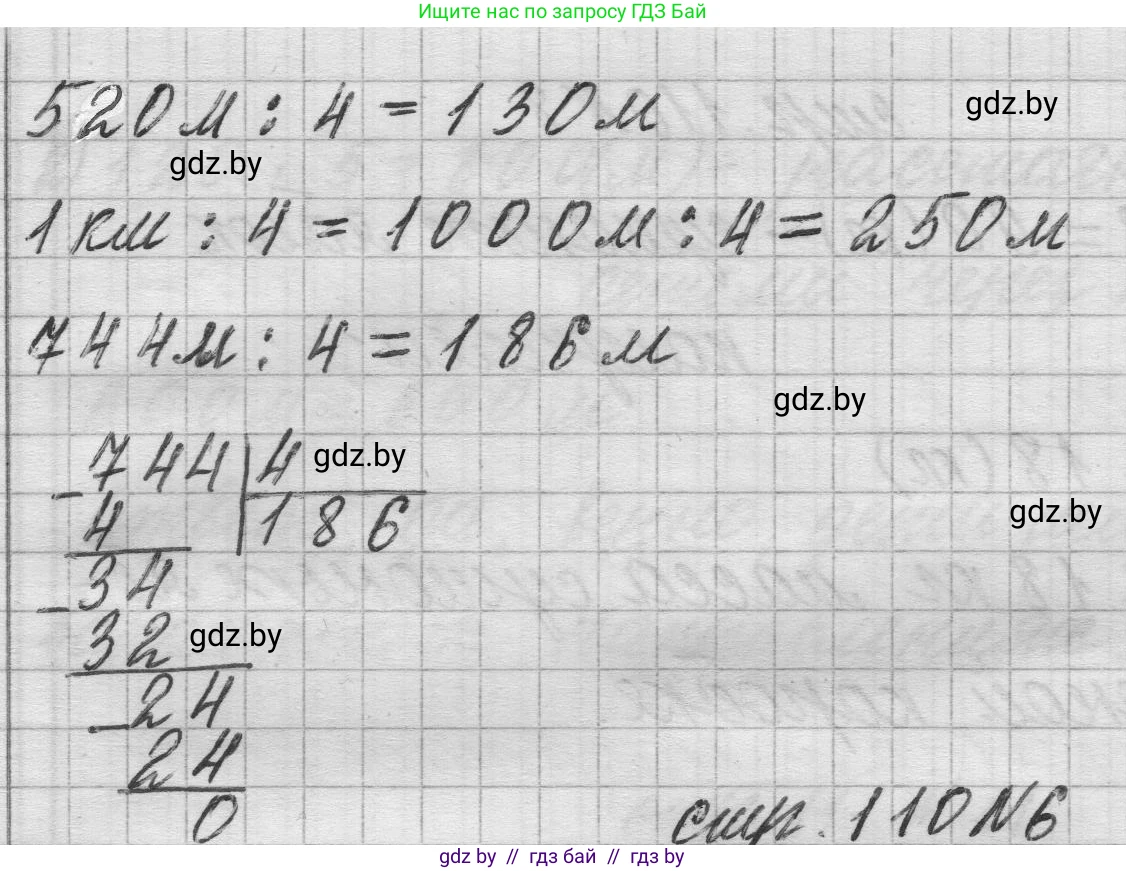 Ищите нас по запросу ГДЗ Бай
520м : 4 = 130м
gdz.by
gdz.by
1км : 4 = 1000м : 4 = 250м
744м : 4 = 186м
gdz.by
744 4
gdz.by
4 186
gdz.by
34
32
gdz.by
24
24
0
стр. 110 N6
gdz by // гдз бай // гдз by